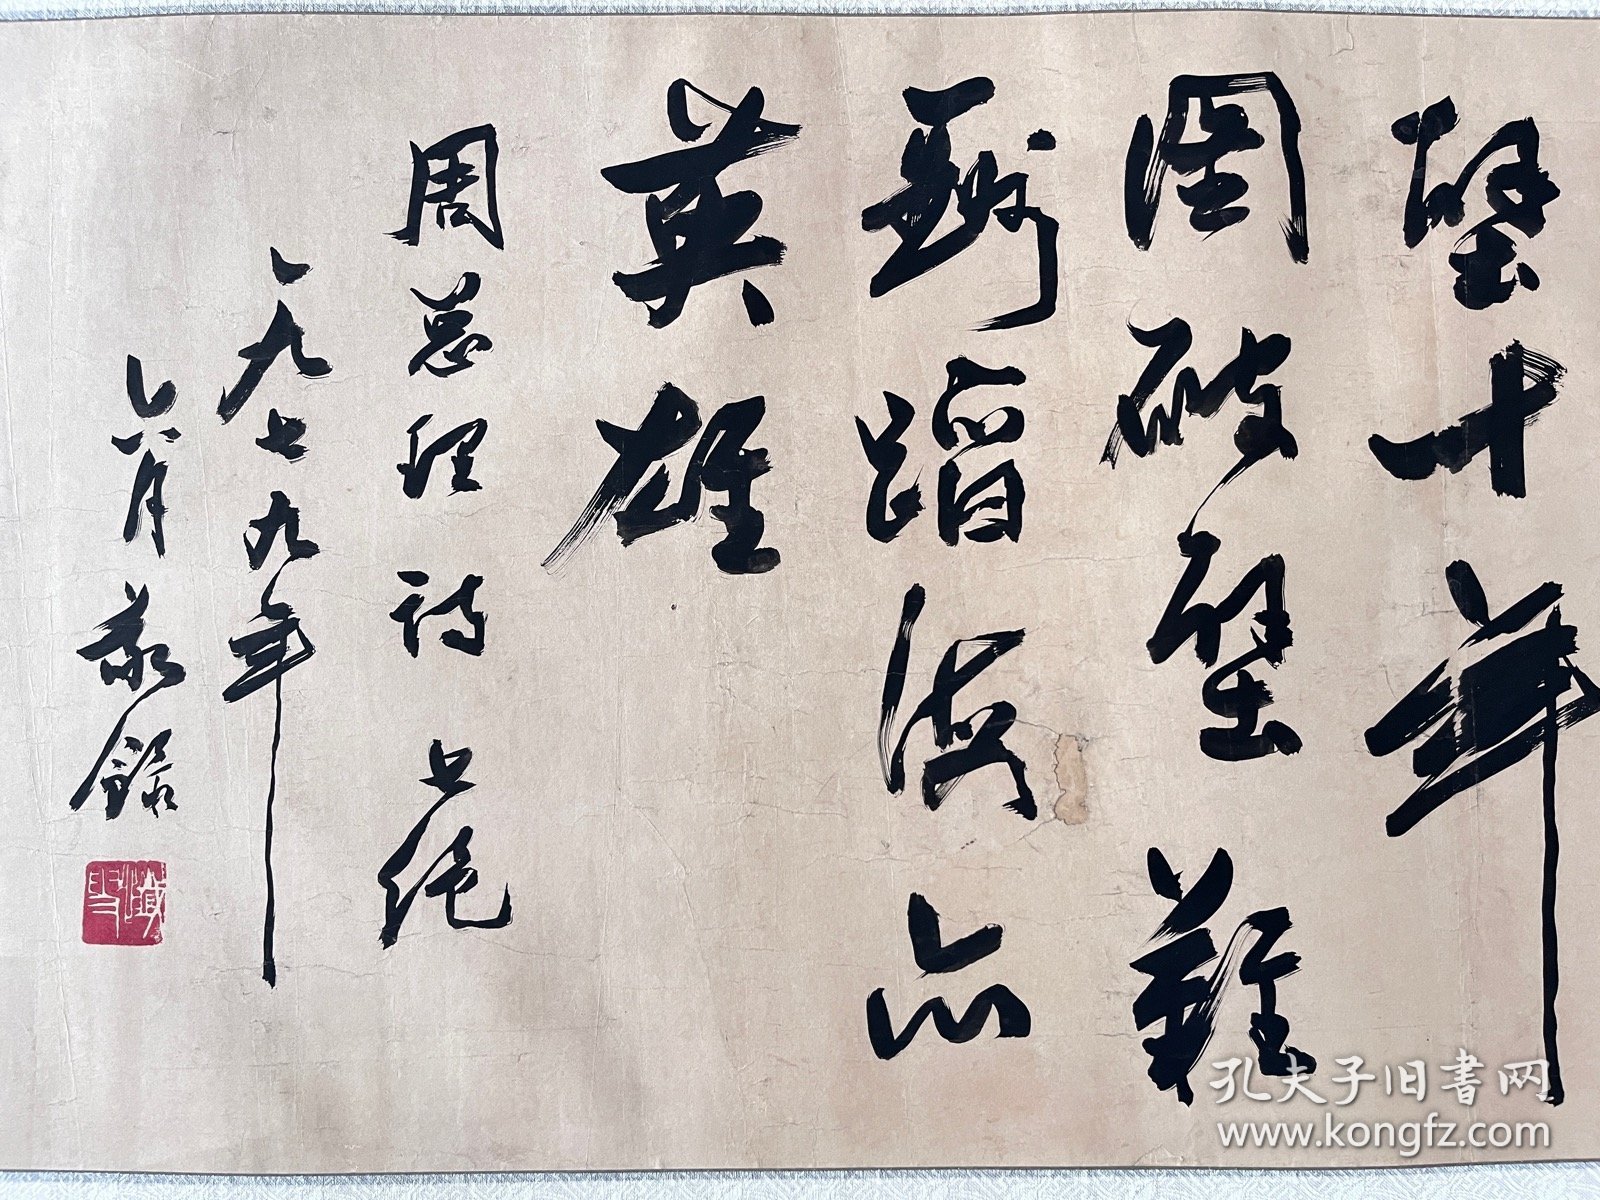 壁十年
图破壁難
酬蹈海亦
英雄
周总理诗七绝
一九七九年
六月敬録
孔夫子旧书网
www.kongfz.com